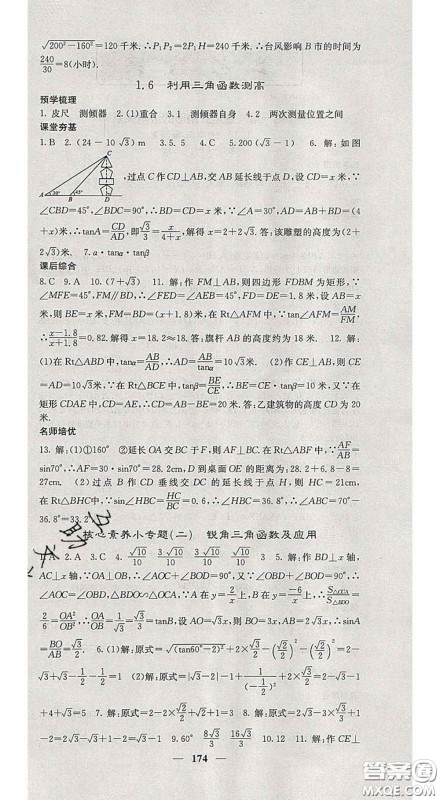 √200²−160²=120千米.∴P₁P₂=2P₁H=240千米.∴台风影响B市的时间为
240/30=8(小时).
1.6 利用三角函数测高
预学梳理
1.皮尺 测倾器 2.(1)重合 3.1 测倾器自身 4.2 两次测量位置之间
课堂夯基
1.B 2.(24−10√3)m 3.5.5 4.C 5.200(√3−1) 6.解:如图
,过点C作CD⊥AB,交AB延长线于点D,设CD=x米,∵
∠CBD=45°,∠BDC=90°,∴BD=CD=x米,∵∠A=30°,AD=AB+BD=(4
+x)米,∴tanA=CD/AD,即√3/3=x/(4+x),解得x=2+2√3.答:该雕塑的高度为(2+
2√3)米. 7.a·tanα·tanβ
课后综合
8.C 9.A 10.(7+√3) 11.解:作FM⊥AB,则四边形FDBM为矩形,∵
∠MFE=45°,FM∥BD,∴∠FED=∠AEB=45°,FD=DE=1.8米,设AB=x
米,∴AM=(x−1.8)米,FM=BD=(x+1.8)米,在Rt△AFM中,tan∠AFM=AM/FM.
∴(x−1.8)/(x+1.8)=0.82.解得x=18.2≈18.答:旗杆AB的高度约为18米. 12.解:
(1)在Rt△ABD中,tanα=AB/AD,∴AD=10√3米; (2)作CE⊥AB,则CE
=AD=10√3米,∵在Rt△BCE中,tanβ=BE/CE=√3/3,∴BE=10√3×√3/3=
10米,∴CD=AE=AB−BE=20米.答:乙建筑物的高度CD为20
米.
名师培优
13.解:(1)①160° ②延长OA交BC于F,则在Rt△ABF中,∵AF/AB=
sin70°,∴AF=30·sin70°=28.2cm,D到桌面OE的距离为:28.2+6.8−8
=27cm. (2)过点B作CD垂线交DC的延长线于点H,则HC=21cm.在
Rt△BHC中,∵sin∠HBC=HC/BC=0.6,∴∠HBC=36.8°,∴∠ABC=70°−
36.8°=33.2°.
核心素养小专题(二) 锐角三角函数及应用
1.A 2.A 3.C 4.√10/10 3√10/10 √10/10 5.解:作BD⊥x轴,
AC⊥x轴,∵OA⊥OB,∴∠AOC+∠BOD=90°,∵∠AOC+∠OAC=90°,
∴∠OAC=∠BOD,△BDO∽△OCA.∵y=2/x与y=−6/x上,∴S△OCA/S△BDO=
2/6=OA²/OB²,∴OA/OB=1/√3=√3/3=tanB,设AO=√3x,则BO=3x,AB=2√3x.∴sinA
=BO/AB=√3/2. 6.(1)解:原式=√(tan60°−2)²+2×√2/2−(√2/2)²=2−√3+√2−
(√2/2)²=3/2−√3+√2. (2)解:原式=|√3−2|−1−1/(−1/2)²+2×√3/2=2−√3−1
+4+√3=5 7.解:原式=2−2×√2/2+√2=2 8.解:原式=2−3×√3/3+√3
−1−2=2−√3+√3−1−2=−1 9.60° 8√3 16√3 10.12 11.解:作CE⊥
174
答案圈
MXQE.COM